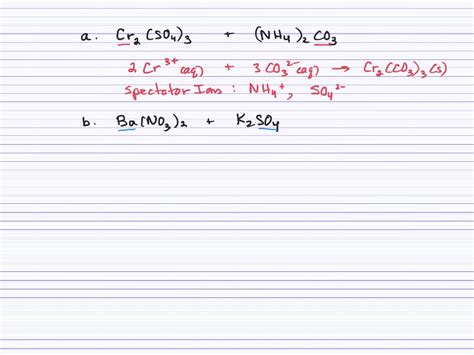 a. Cr₂(SO₄)₃ + (NH₄)₂CO₃
2Cr³⁺(aq) + 3CO₃²⁻(aq) → Cr₂(CO₃)₃(s)
Spectator Ions : NH₄⁺, SO₄²⁻
b. Ba(NO₃)₂ + K₂SO₄